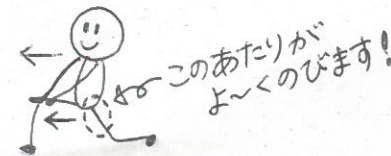 このあたりが
よ〜くのびます!